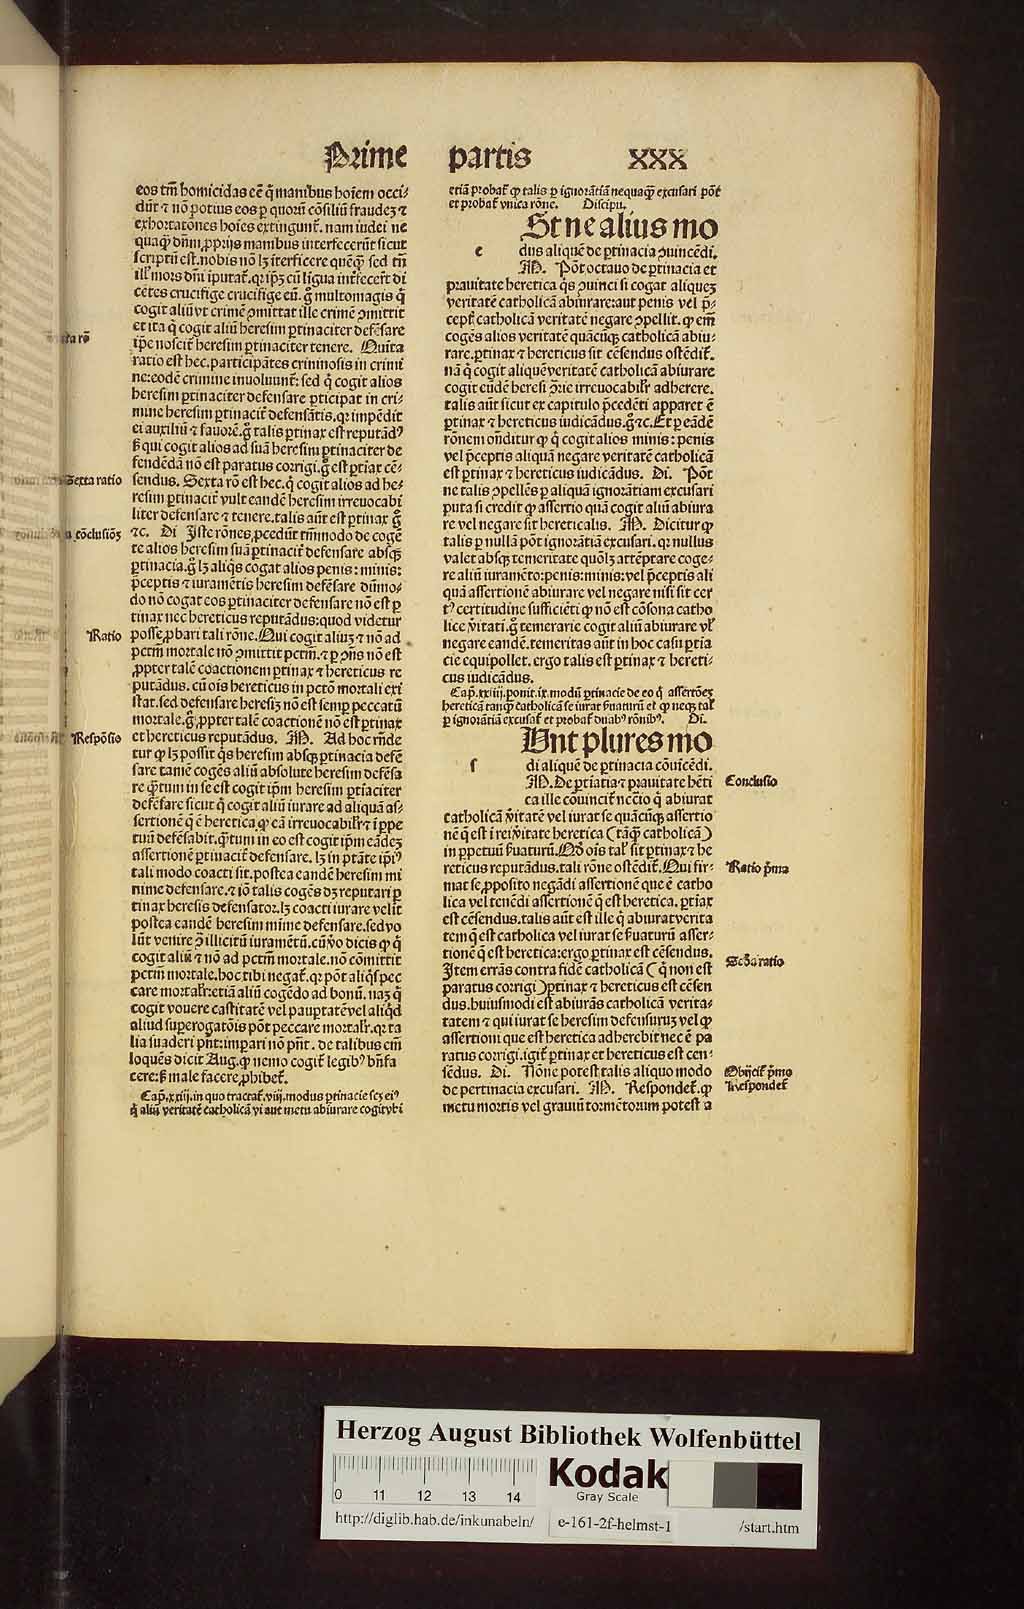 Prime partis XXX
eos tm̄ homicidas eē q̄ manibus hoīem occi⸗
dūt ⁊ nō potius eos ꝑ quorū cōsiliū fraudeꝫ ⁊
exhortatōnes hoīes extingunt̄. nam iudei ne
quaqꝫ dn̄i ꝓprijs manibus interfecerūt sicut
scriptū est. nobis nō lꝫ īterficere quēqꝫ sed tn̄
illꝭ mors dn̄i īputat̄. qꝛ ip̄ꝫ cū līgua int̄fecer̄t di
cētes crucifige crucifige eū. g̊ multomagis q̄
cogit aliū vt crimē ꝯmittat ille crimē ꝯmittit
et ita q̄ cogit aliū heresim ꝑtinaciter defēsare
ip̄e noscit̄ heresim ꝑtinaciter tenere. Quīta
ratio est hec. participātes criminosis in crimi
ne: eodē crimine inuoluunt̄: sed q̄ cogit alios
heresim ꝑtinaciter defensare ꝑticipat in cri⸗
mine heresim ꝑtinacit̄ defensātis. qꝛ impēdit
ei auxiliū ⁊ fauorē. g̊ talis ꝑtinax est reputādꝰ
ẜ qui cogit alios ad suā heresim ꝑtinaciter de
fendēdā nō est paratus corrigi. g̊ est ꝑtīax cē⸗
sendus. Sexta rō est hec. q̄ cogit alios ad he⸗
resim ꝑtinacit̄ vult eandē heresim irreuocabi
liter defensare ⁊ tenere. talis aūt est ꝑtinax g̊
⁊c. Di Iste rōnes ꝓcedūt tm̄modo de cogē
te alios heresim suā ꝑtinacit̄ defensare absqꝫ
ꝑtinacia. g̊ lꝫ aliq̄s cogat alios penis: minis:
p̄ceptis ⁊ iuramētis heresim defēsare dūmo⸗
do nō cogat eos ꝑtinaciter defensare nō est ꝑ
tinax nec hereticus reputādus: quod videtur
posse ꝓbari tali rōne. Qui cogit aliuꝫ ⁊ nō ad
pctm̄ mortale nō ꝯmittit pctm̄. ⁊ ꝑ ꝯn̄s nō est
ꝓpter talē coactionem ꝑtinax ⁊ hereticus re
putādus. cū oīs hereticus in pctō mortali exi
stat. sed defensare heresiꝫ nō est semꝑ peccatū
mortale. g̊ ꝓpter talē coactionē nō est ꝑtinax
et hereticus reputādus. M. Ad hoc rn̄de
tur ꝙ lꝫ possit q̄s heresim absqꝫ ꝑtinacia defē
sare tamē cogēs aliū absolute heresim defēsa
re qꝫtum in se est cogit ip̄m heresim ꝑtīaciter
defēsare sicut q̄ cogit aliū iurare ad aliquā as⸗
sertionē q̄ ē heretica ꝙ eā irreuocabilꝭ ⁊ ī ꝑpe
tuū defēsabit. qꝫtum in eo est cogit ip̄m eādeꝫ
assertionē ꝑtinacit̄ defensare. lꝫ in ptāte ip̄iꝰ
tali modo coacti sit. postea eandē heresim mi
nime defensare. ⁊ iō talis cogēs dꝫ reputari ꝑ
tinax heresis defensator. lꝫ coacti iurare velit
postea eandē heresim mīme defensare. sed vo
lūt venire ꝯ illicitū iuramētū. cū v̄o dicis ꝙ q̄
cogit aliū ⁊ nō ad pctm̄ mortale. nō cōmittit
pctm̄ mortale. hoc tibi negat̄. qꝛ pōt aliq̄s pec
care mortalꝭ: etiā aliū cogēdo ad bonū. naꝫ q̄
cogit vouere castitatē vel pauptatē vel aliq̄d
aliud superogatōis pōt peccare mortalꝭ. qꝛ ta
lia suaderi pn̄t: impari nō pn̄t. de talibus em̄
loquēs dicit Aug. ꝙ nemo cogit̄ legibꝰ bn̄fa
cere: ẜ male facere ꝓhibet̄.
Cap̄. xxiij. in quo tractat̄. viij. modus ꝑtinacie scꝫ eiꝰ
q̄ aliū veritatē catholicā vi aut metu abiurare cogit vbi
xta rō
Sexta ratio
cōclusiōꝫ
Ratio
Respōsio
etiā probat̄ ꝙ talis ꝑ ignorātiā nequaqꝫ excusari pōt
et probat̄ vnica rōne. Discipu.
St ne alius mo
e dus aliquē de ꝑtinacia ꝯuincēdi.
M. Pōt octauo de ꝑtinacia et
prauitate heretica q̄s ꝯuinci si cogat aliqueꝫ
veritatē catholicā abiurare: aut penis vel p̄⸗
cept̄ catholicā veritatē negare ꝯpellit. ꝙ em̄
cogēs alios veritatē quācūqꝫ catholicā abiu⸗
rare. ꝑtinax ⁊ hereticus sit cēsendus ostēdit̄.
nā q̄ cogit aliquē veritatē catholicā abiurare
cogit eūdē heresi ꝯrie irreuocabilꝭ adherere.
talis aūt sicut ex capitulo p̄cedēti apparet ē
ꝑtinax ⁊ hereticus iudicādus. g̊ ⁊c. Et ꝑ eādē
rōnem on̄ditur ꝙ q̄ cogit alios minis: penis
vel p̄ceptis aliquā negare veritatē catholicā
est ꝑtinax ⁊ hereticus iudicādus. Di. Pōt
ne talis ꝯpellēs ꝑ aliquā ignorātiam excusari
puta si credit ꝙ assertio quā cogit aliū abiura
re vel negare sit hereticalis. M. Dicitur ꝙ
talis ꝑ nullā pōt ignorātiā excusari. qꝛ nullus
valet absqꝫ temeritate quōlꝫ attēptare coge⸗
re aliū iuramēto: penis: minis: vel p̄ceptis ali
quā assertionē abiurare vel negare nisi sit cer
tꝰ certitudine sufficiēti ꝙ nō est cōsona catho
lice v̄itati. g̊ temerarie cogit aliū abiurare vꝉ
negare eandē. temeritas aūt in hoc casu ꝑtīa
cie equipollet. ergo talis est ꝑtinax ⁊ hereti⸗
cus iudicādus.
Cap̄. xxiiij. ponit. ix. modū ꝑtinacie de eo q̄ assertōeꝫ
hereticā tanqꝫ catholicā se iurat ẜuaturū et ꝙ neqꝫ talꝭ
ꝑ ignorātiā excusat̄ et probat̄ duabꝰ rōnibꝰ. Di.
Unt plures mo
s di aliquē de ꝑtinacia cōuicēdi.
M. De ꝑtīatia ⁊ prauitate hēti
ca ille cōuincit̄ nec̄cio q̄ abiurat
catholicā v̄itatē vel iurat se quācūqꝫ assertio
nē q̄ est ī rei v̄itate heretica (tāqꝫ catholicā)
in ꝑpetuū ẜuaturū. Qd̄ oīs talꝭ sit ꝑtinax ⁊ he
reticus reputādus. tali rōne ostēdit̄. Qui fir⸗
mat se ꝓposito negādi assertionē que ē catho
lica vel tenēdi assertionē q̄ est heretica. ꝑtīax
est cēsendus. talis aūt est ille q̄ abiurat verita
tem q̄ est catholica vel iurat se ẜuaturū asser⸗
tionē q̄ est heretica: ergo ꝑtinax est cēsendus.
Item errās contra fidē catholicā (q̄ non est
paratus corrigi) ꝑtinax ⁊ hereticus est cēsen
dus. huiusmodi est abiurās catholicā verita⸗
tatem ⁊ qui iurat se heresim defensuruꝫ vel ꝙ
assertioni que est heretica adherebit nec ē pa
ratus corrigi. igit̄ ꝑtinax et hereticus est cen⸗
sēdus. Di. Nōne potest talis aliquo modo
de pertinacia excusari. M. Respondet̄. ꝙ
metu mortis vel grauiū tormētorum potest a
Conclusio
Ratio p̄ma
Sc̄da ratio
Obijcit̄ p̄mo
Respondet̄
Herzog August Bibliothek Wolfenbüttel
0 11 12 13 14
Kodak
Gray Scale
http://diglib.hab.de/inkunabeln/ e-161-2f-helmst-1 /start.htm